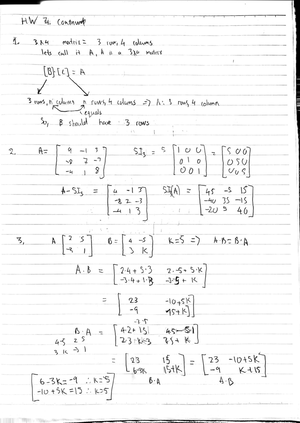 HW 2c continued
1. 3x4 matrix = 3 rows, 4 colums
lets call it A, A = a 3x4 matrix
[B][C] = A
3 rows, n column n rows, 4 columns => A: 3 rows, 4 column
equals
So, B should have 3 rows
2. A = [9 -1 3
-8 7 -3
-4 1 8]
5I3 = 5 [1 0 0
0 1 0
0 0 1] = [5 0 0
0 5 0
0 0 5]
A-5I3 = [4 -1 3
-8 2 -3
-4 1 3]
5I3(A) = [45 -5 15
-40 35 -15
-20 5 40]
3. A [2 5
-3 1]
B = [4 -5
3 K]
K=5 => A·B = B·A
A·B = [2·4+5·3 2·-5+5·K
-3·4+1·3 -3·-5+K]
= [23 -10+5K
-9 15+K]
B·A = [4·2+15
= [23 15
6-3K 15+K] = [23 -10+5K
-9 K+15]
B·A A·B
[6-3K=-9 ∴ K=5
-10+5K=15 ∴ K=5]